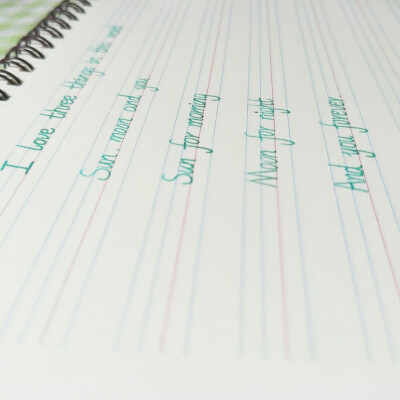 I love three things in this world
Sun, moon and you
Sun for morning
Moon for night
And you forever.